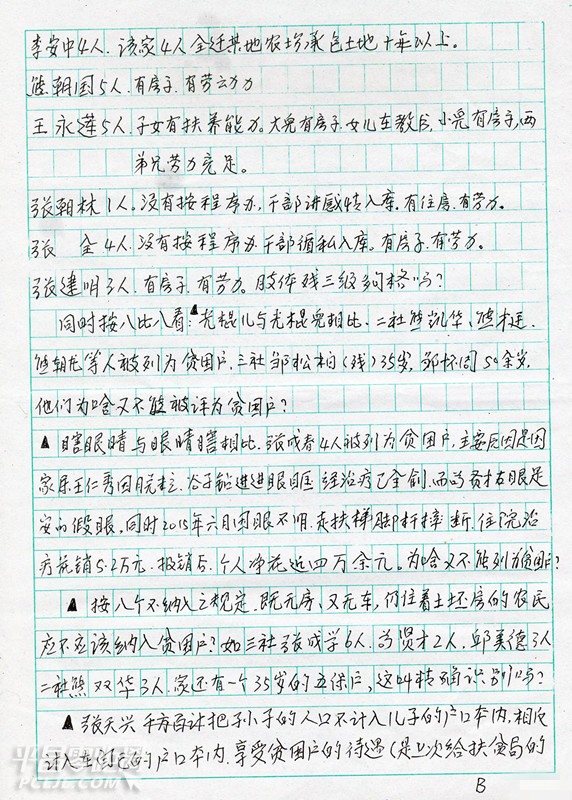 李安中4人.该家4人全迁某地农场承包土地十年以上。
熊朝国5人.有房子.有劳动力
王永莲5人.子女有扶养能力。大儿有房子.女儿在教书.小儿有房子,两
弟兄劳力充足。
张朝林1人。没有按程序办,干部讲感情入库。有住房.有劳力。
张 全4人.没有按程序办.干部循私入库。有房子.有劳力。
张建明3人.有房子.有劳力。肢体残三级够格吗?
同时按八比八看:▲光棍儿与光棍儿相比.二社熊凯华、熊
熊朝龙等人被列为贫困户.三社邹松柏(残)35岁,邹怀周50余岁.
他们为啥又不能被评为贫困户?
▲瞎眼睛与眼睛瞎相比.张成春4人被列为贫困户.主要原因是因
家属王仁秀因 谷子 进眼 经治疗已全愈.而 贤才右眼是
安的假眼.同时2015年六月因眼不明.走扶梯脚杆摔断.住院治
疗花销5.2万元.报销后.个人净花近四万余元。为啥又不能列为贫困户?
▲按八个不纳入之规定.既无房、又无车,仍住着土坯房的农民
应不应该纳入贫困户?如三社张成学6人. 贤才2人.邱美德3人
二社熊双华3人.家还有一个35岁的五保户,这叫精确识别吗?
▲张天兴千方百计把 小子的人口不计入儿子的户口本内.相反
计入 的户口本内.享受贫困户的待遇(是上次给扶贫局的
B